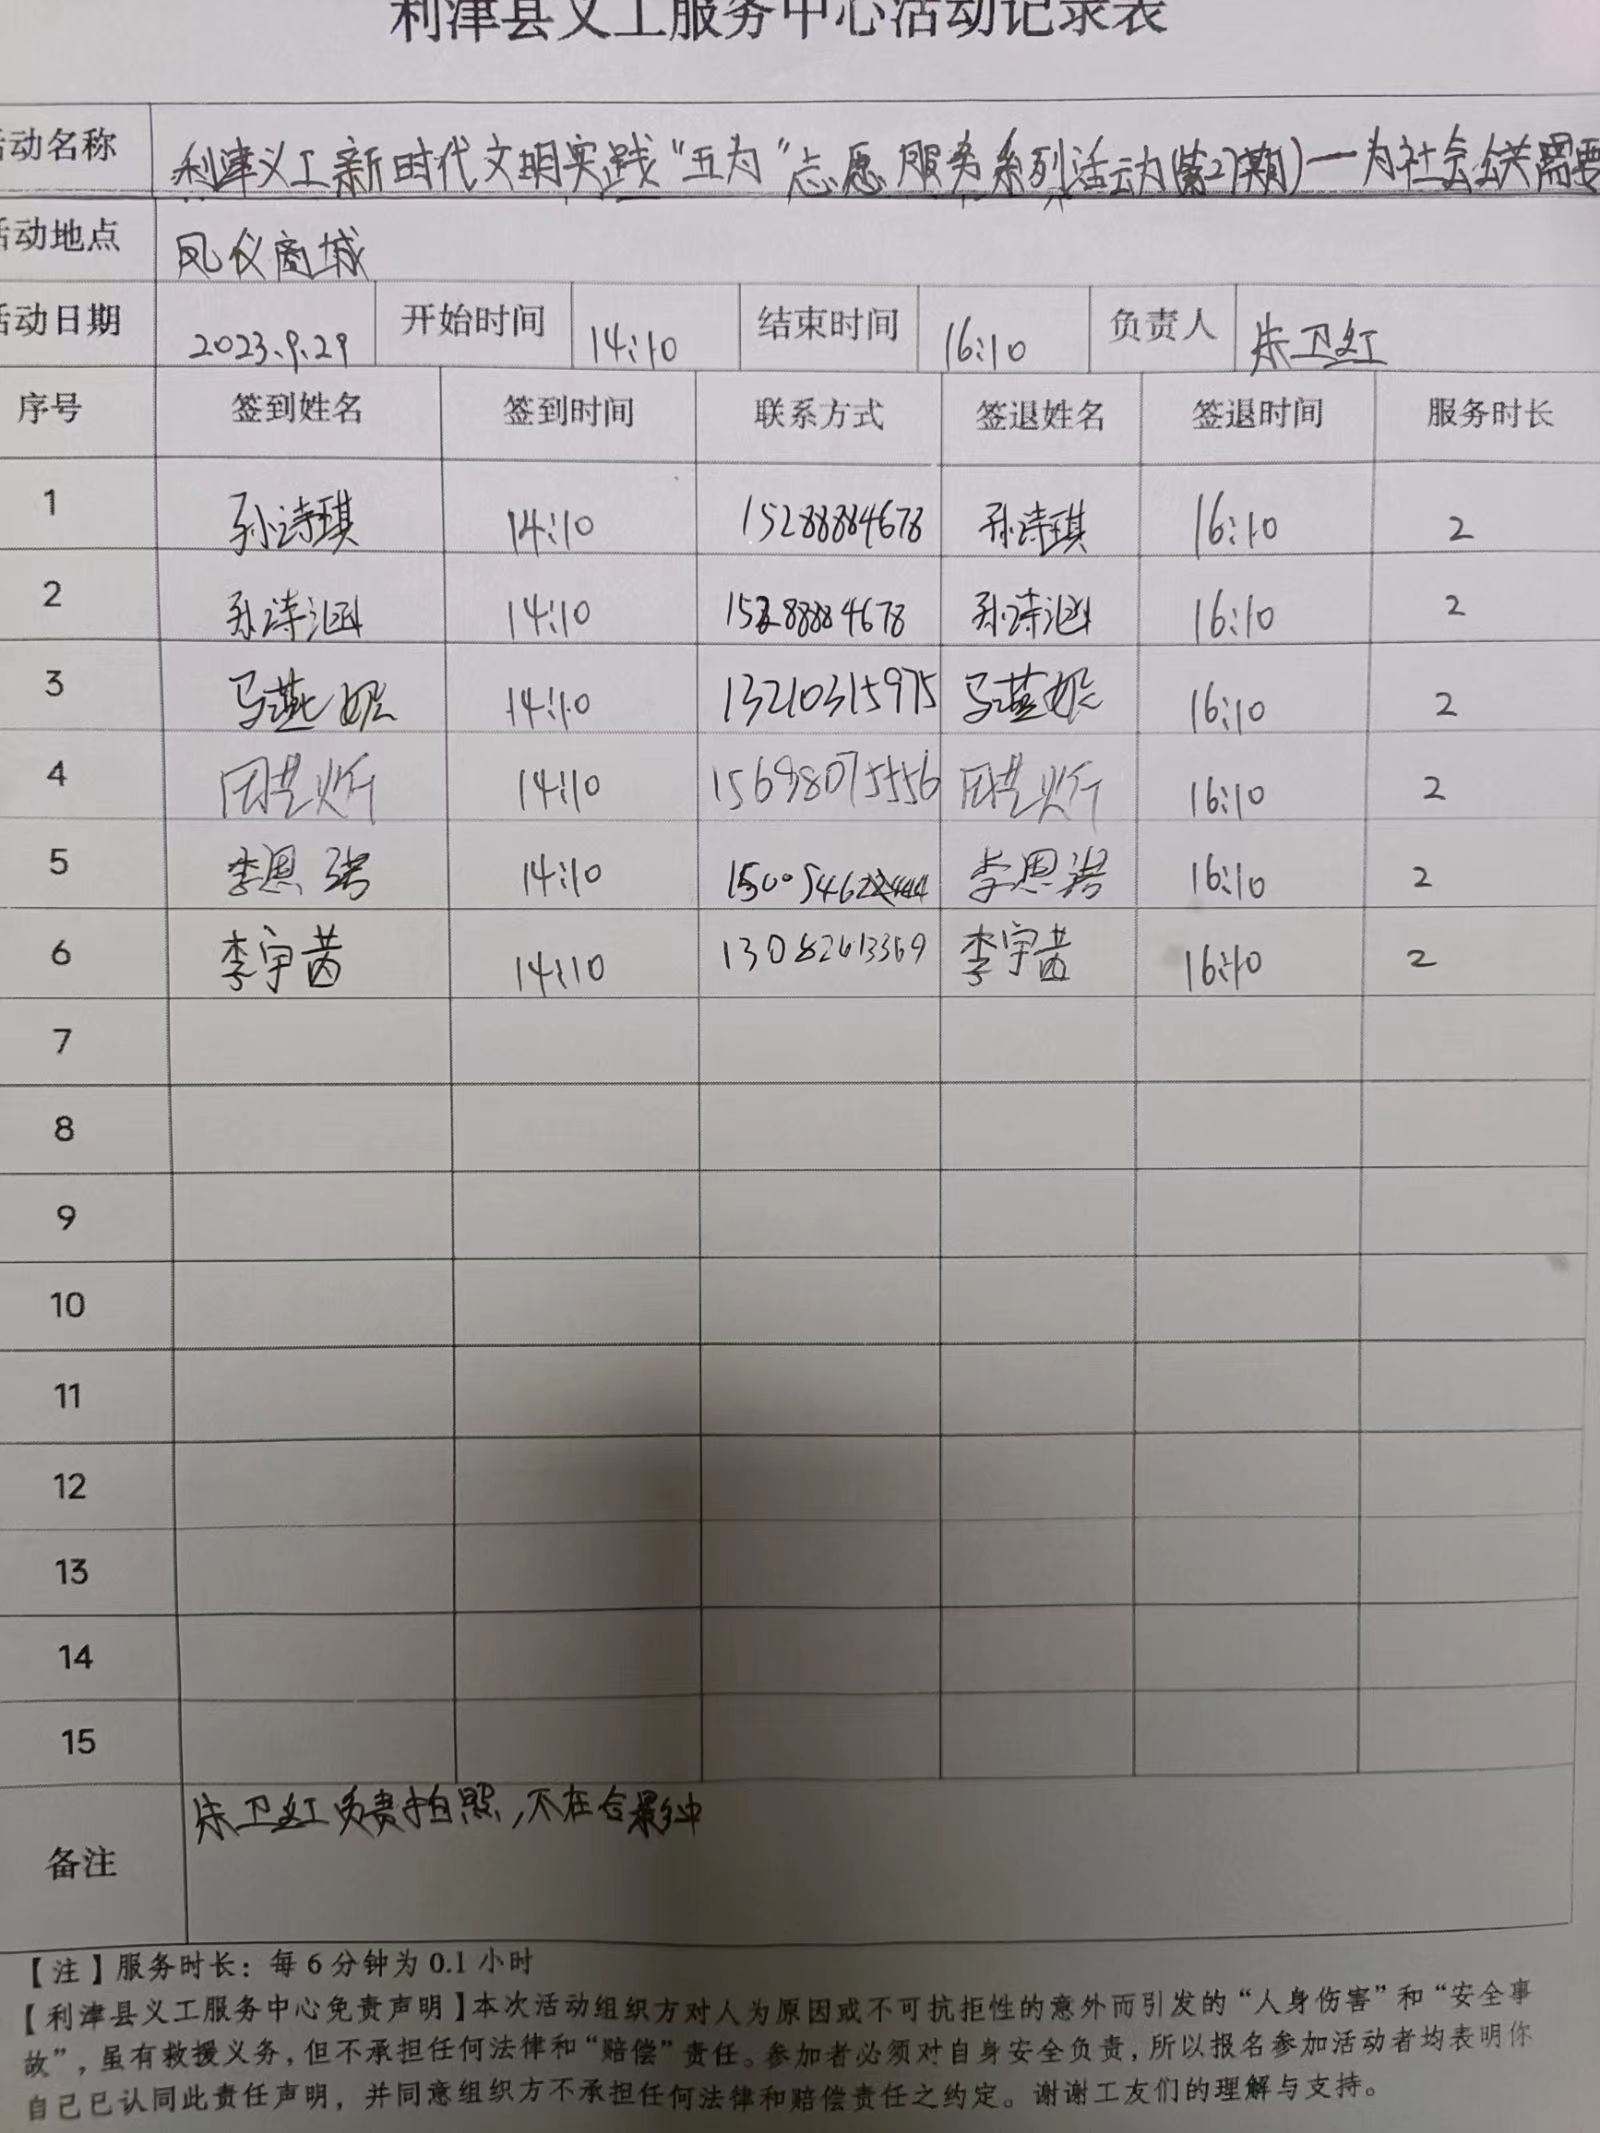 利津县义工服务中心活动记录表
活动名称 利津义工新时代文明实践“五为”志愿服务系列活动(第27期)—为社会公共需要
活动地点 凤仪商城
活动日期 2023.9.29 开始时间 14:10 结束时间 16:10 负责人 朱卫红
序号 签到姓名 签到时间 联系方式 签退姓名 签退时间 服务时长
1 孙诗琪 14:10 15288884678 孙诗琪 16:10 2
2 孙诗涵 14:10 15288884678 孙诗涵 16:10 2
3 马燕妮 14:10 13210315975 马燕妮 16:10 2
4 14:10 15698075556 16:10 2
5 李恩 14:10 李恩 16:10 2
6 李宇茜 14:10 李宇茜 16:10 2
7
8
9
10
11
12
13
14
15
备注 朱卫红负责拍照,不在合影中
【注】服务时长：每6分钟为0.1小时
【利津县义工服务中心免责声明】本次活动组织方对人为原因或不可抗拒性的意外而引发的“人身伤害”和“安全事
故”，虽有救援义务，但不承担任何法律和“赔偿”责任。参加者必须对自身安全负责，所以报名参加活动者均表明你
自己已认同此责任声明，并同意组织方不承担任何法律和赔偿责任之约定。谢谢工友们的理解与支持。